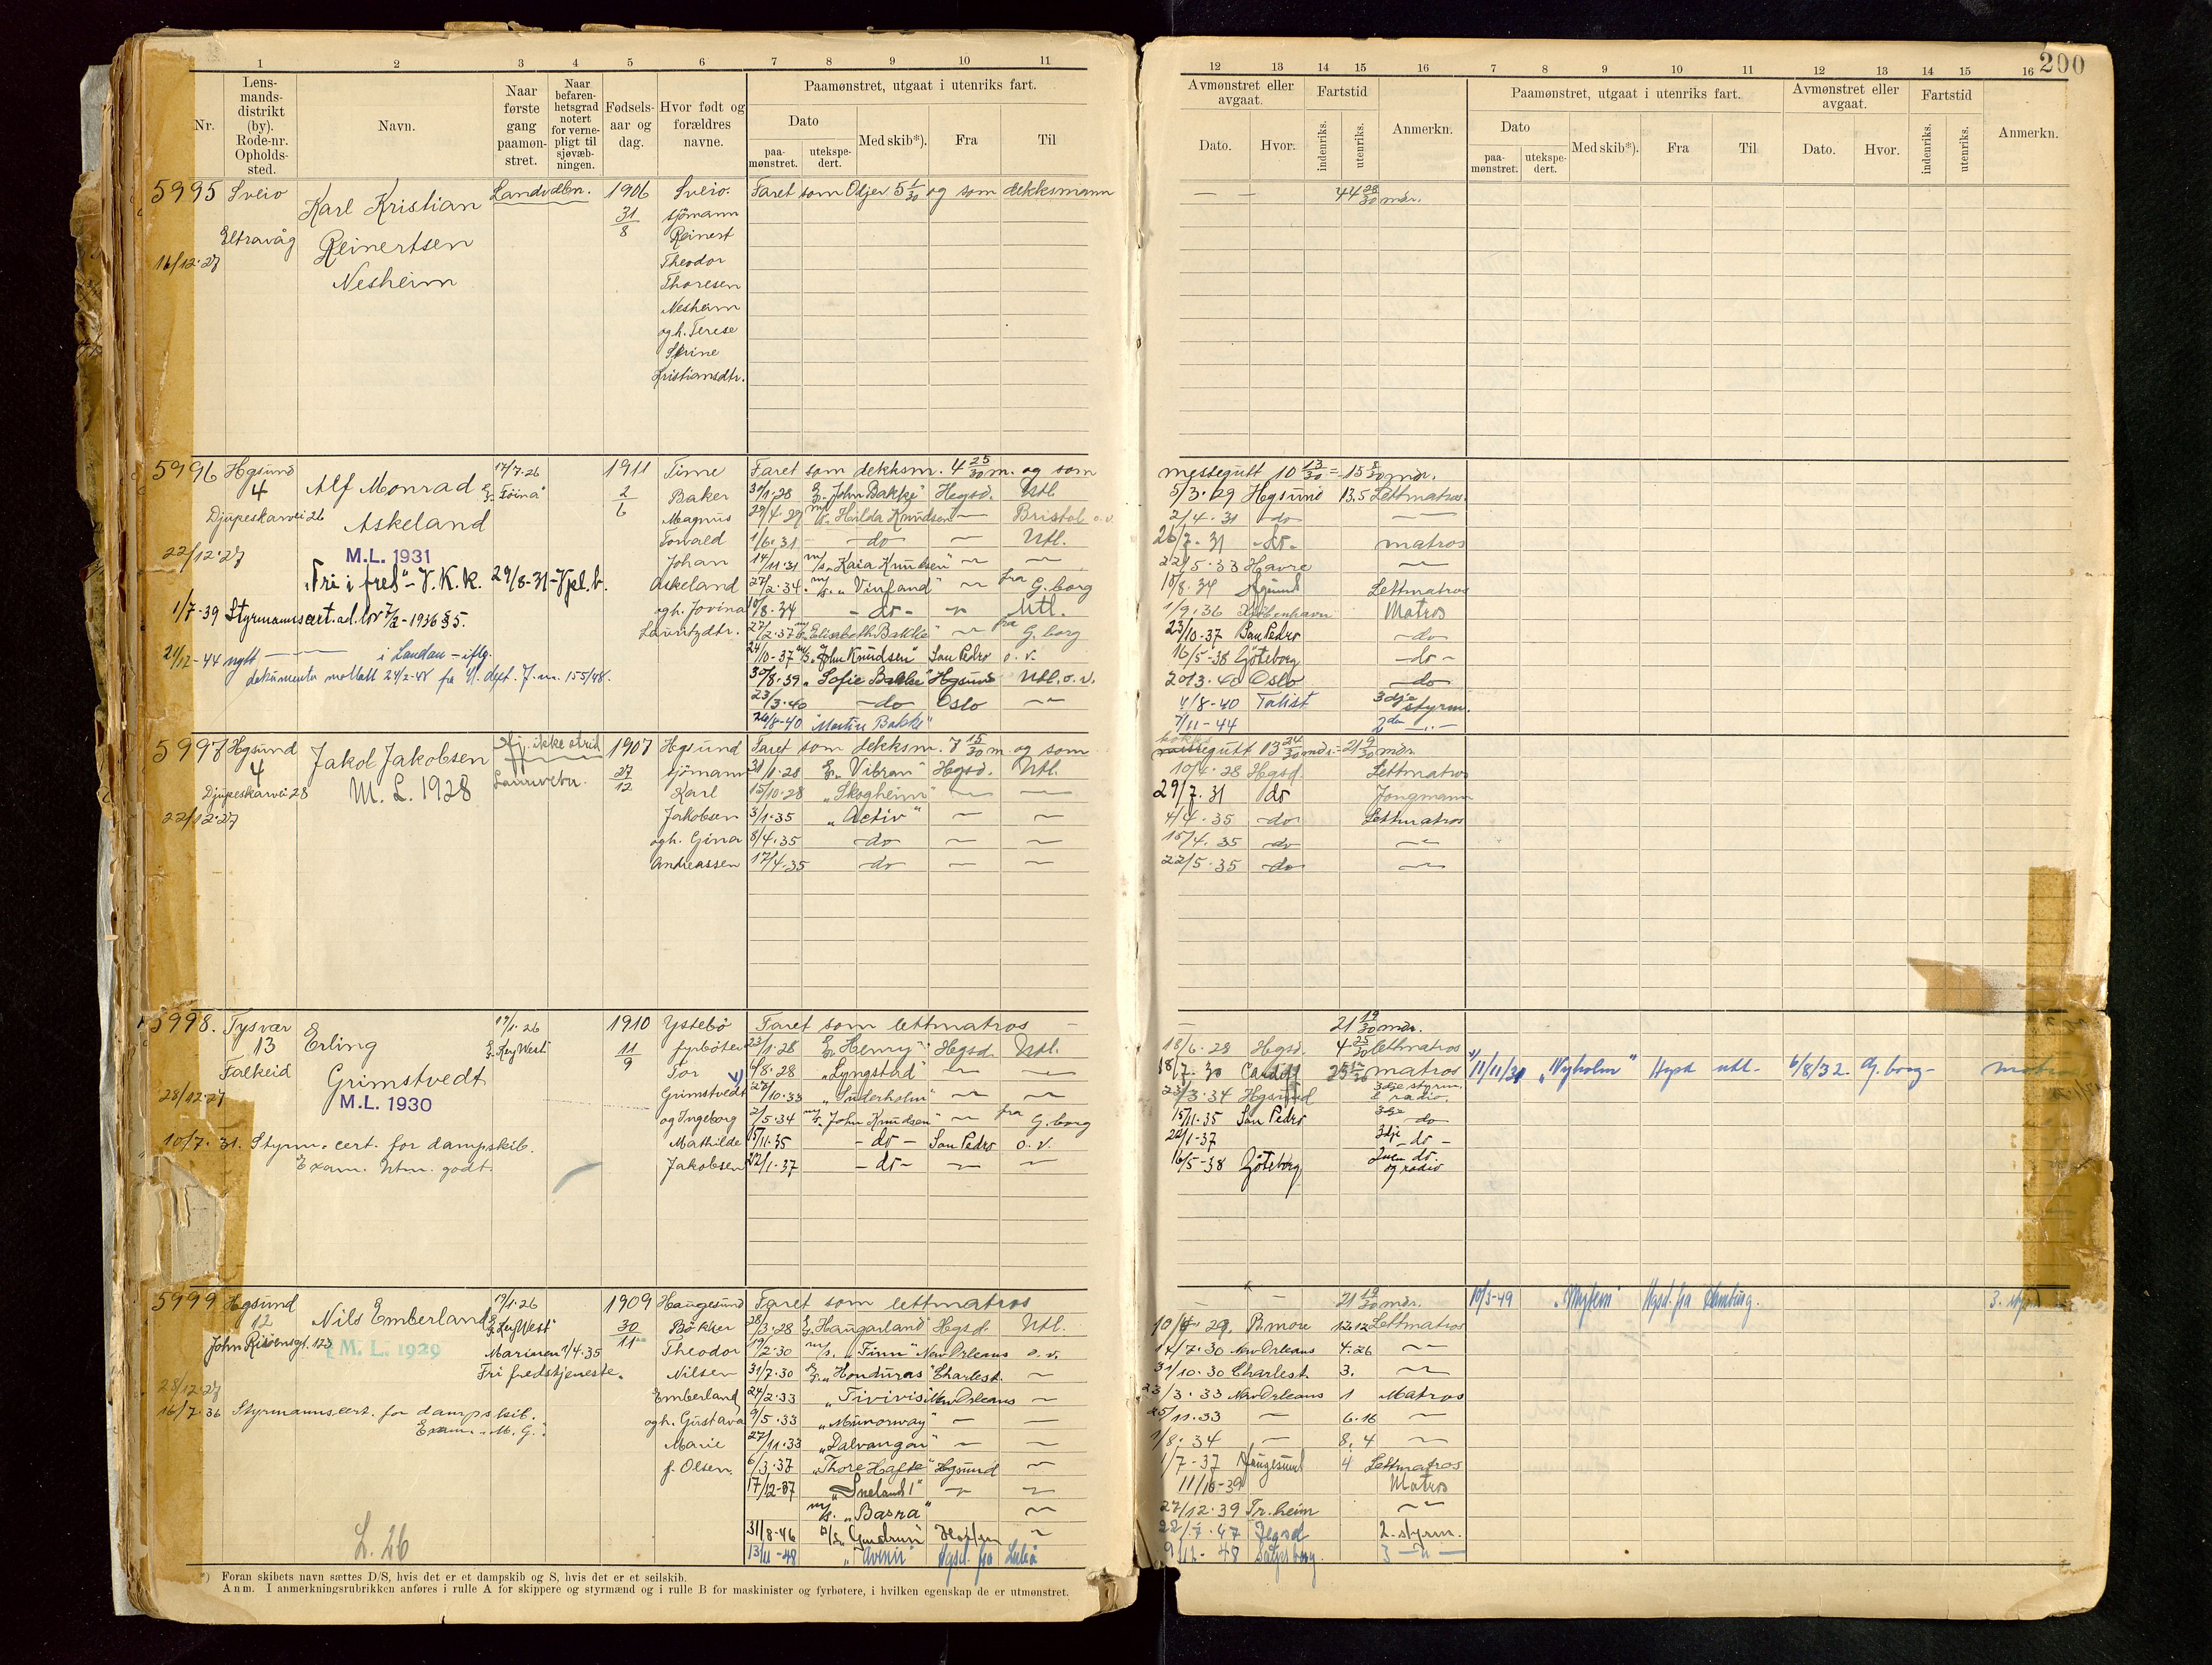 200
1 2 3 4 5 6 7 8 9 10 11
Nr.
Lens-
mands-
distrikt
(by).
Rode-nr.
Opholds-
sted.
Navn.
Naar
første
gang
paamøn-
stret.
Naar
befaren-
hetsgrad
notert
for verne-
pligt til
sjøvæb-
ningen.
Fødsels-
aar og
dag.
Hvor født og
forældres
navne.
Paamønstret, utgaat i utenriks fart.
Dato
paa-
mønstret.
utekspe-
dert.
Med skib*).
Fra
Til
12 13 14 15 16 7 8 9 10 11 12 13 14 15 16
Avmønstret eller
avgaat.
Dato. Hvor.
Fartstid
indenriks.
utenriks.
Anmerkn.
Paamønstret, utgaat i utenriks fart.
Dato
paa-
mønstret.
utekspe-
dert.
Med skib*). Fra Til
Avmønstret eller
avgaat.
Dato. Hvor.
Fartstid
indenriks.
utenriks.
Anmerkn.
5995 Sveio
16/12.27
Karl Kristian
Reinertsen
Nesheim
1906
31/8
Sveio.
sjömann
Reinert
Theodor
Thoresen
Nesheim
ogh. Terese
Kristiansdtr.
og som dekksmann
44 28/30 mdr.
5996 Hgsund
4
Djupeskarvei 26
22/12.27
Alf Monrad
Askeland
M.L. 1931
"Fri i fred" - V.K.K. 29/8-31
1/7-39 Styrmannscert. ad. lov 7/2-1936 § 5.
17/7.26
1911
2/6
Time
Baker
Magnus
Torvald
Johan
Askeland
ogh. Jovina
Lauritzdtr.
Faret som dekksm. 4 25/30 m. og som
30/1.28 "John Bakke" Hegsd. Utl.
29/4-29 m/s. "Hilda Knudsen" — Bristol o.v.
1/6.31 — do — — Utl.
14/11.31 m/s. "Kaia Knudsen" — —
27/2.34. m/s. "Vinland" — fra G.borg
10/8.34 — do — — Utl.
27/2.37 "Elisabeth Bakke" — fra G.borg
24/10-37 m/s "John Knudsen" San Pedro o.v.
30/8.39 "Sofie Bakke" Hgsund Utl. o.v.
23/3.40 — do Oslo —
26/8-40 "Martin Bakke"
messegutt 10 13/30 = 15 8/30 mdr.
5/3.29 Hgsund 13.5 Lettmatros
2/4.31 — do — —
26/7-31 — do — matros
22/5.33 Havre —
10/8.34 Hgsund Lettmatros
1/9.36 Kjöbenhavn Matros
23/10-37 San Pedro — do
16/5-38 Göteborg — do —
20/3.40 Oslo — do
4/8-40 3dje styrm.
7/11-44 2den —
5997 Hgsund
4
Djupeskarvei 28
22/12.27
Jakob Jakobsen
M.L. 1928
1907
27/12
Hgsund
sjömann
Karl
Jakobsen
ogh. Gina
Andreassen
Faret som dekksm. 7 15/30 m. og som
31/1.28 "Vibran" Hegsd. Utl.
15/10.28 "Skogheim" — —
3/1.35 "Activ" — —
8/4.35 — do — —
17/4.35 — do — —
13 24/30 mdr. = 21 9/30 mdr.
10/4.28 Hegsd. Lettmatros
29/7.31 do Jungmann
4/4.35 do Lettmatros
15/4.35 do —
22/5.35 do —
5998. Tysvær
13
Falkeid
28/12.27
Erling
Grimstvedt
M.L. 1930
10/7.31. Styrm. cert. for dampskib.
Exam. Utm. godt.
19/1.26
"Key West"
1910
11/9
Ystebö
fyrböter
Tor
Grimstvedt
og Ingeborg
Mathilde
Jakobsen
Faret som lettmatros
23/1.28 "Henry" Hegsd. Utl.
6/8.28 "Lyngstad" — —
27/10.33 "Suderholm" — —
2/5.34 m/s. "John Knudsen" — fra G.borg
15/11.35 — do — San Pedro o.v.
22/1.37 — do — — —
21 19/30 mdr.
18/6.28 Hegsd. 4 25/30 lettmatros
18/7.30 Cardiff matros
Hgsund 3dje styrm. & radio.
15/11.35 San Pedro 3dje do
22/1-37 3dje do —
16/5-38 Göteborg 2nen do. og radio
11/11/31 "Nyholm" Hgsd utl. 6/8/32. G.borg — matros
5999 Hgsund
12
28/12.27
Nils Emberland
M.L. 1929
16/7.36 Styrmannscert. for dampskib.
Exam. M.G.
19/1.26
"Key West"
Marinen 1/4.35
Fri fredstjeneste.
L. 26
1909
30/11
Haugesund
Bökker
Theodor
Nilsen
Emberland
ogh. Gustava
Marie
f. Olsen.
Faret som lettmatros
28/3.28 "Haugarland" Hegsd. Utl.
19/2.30 m/s. "Finn" New Orleans o.v.
31/7.30 "Honduras" Charlest. —
24/2.33 "Tivives" New Orleans —
9/5.33 "Munorway" — —
27/11.33 "Dalvangen" — —
6/3.37 "Thore Hafte" Hgsund —
17/12-37 "Sneland I" — —
m/s. "Basra" —
31/8-46 "Gudrun" —
13/11-48 "Avenir" Hgsd. fra Luleå
21 19/30 mdr.
B.more Lettmatros
New Orleans 4.26 —
31/10.30 Charlest. 3. —
23/3.33 New Orleans 1 Matros
25/11.33 — 6.16 —
1/8.34 — 8.4 —
1/7-37 Haugesund 4 Lettmatros
11/10-39 Matros
27/12.39 Tr.heim —
22/7.47 Hegsd 2. styrm.
9/12-48 Sarpsborg 3 — " —
10/3-49 Hgsd. fra Hamburg. 3. styrm
*) Foran skibets navn sættes D/S, hvis det er et dampskib og S, hvis det er et seilskib.
Anm. I anmerkningsrubrikken anføres i rulle A for skippere og styrmænd og i rulle B for maskinister og fyrbøtere, i hvilken egenskap de er utmønstret.